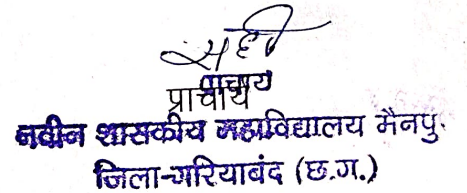 सही
प्राचार्य
प्राचार्य
नवीन शासकीय महाविद्यालय मैनपु.
जिला-गरियाबंद (छ.ग.)